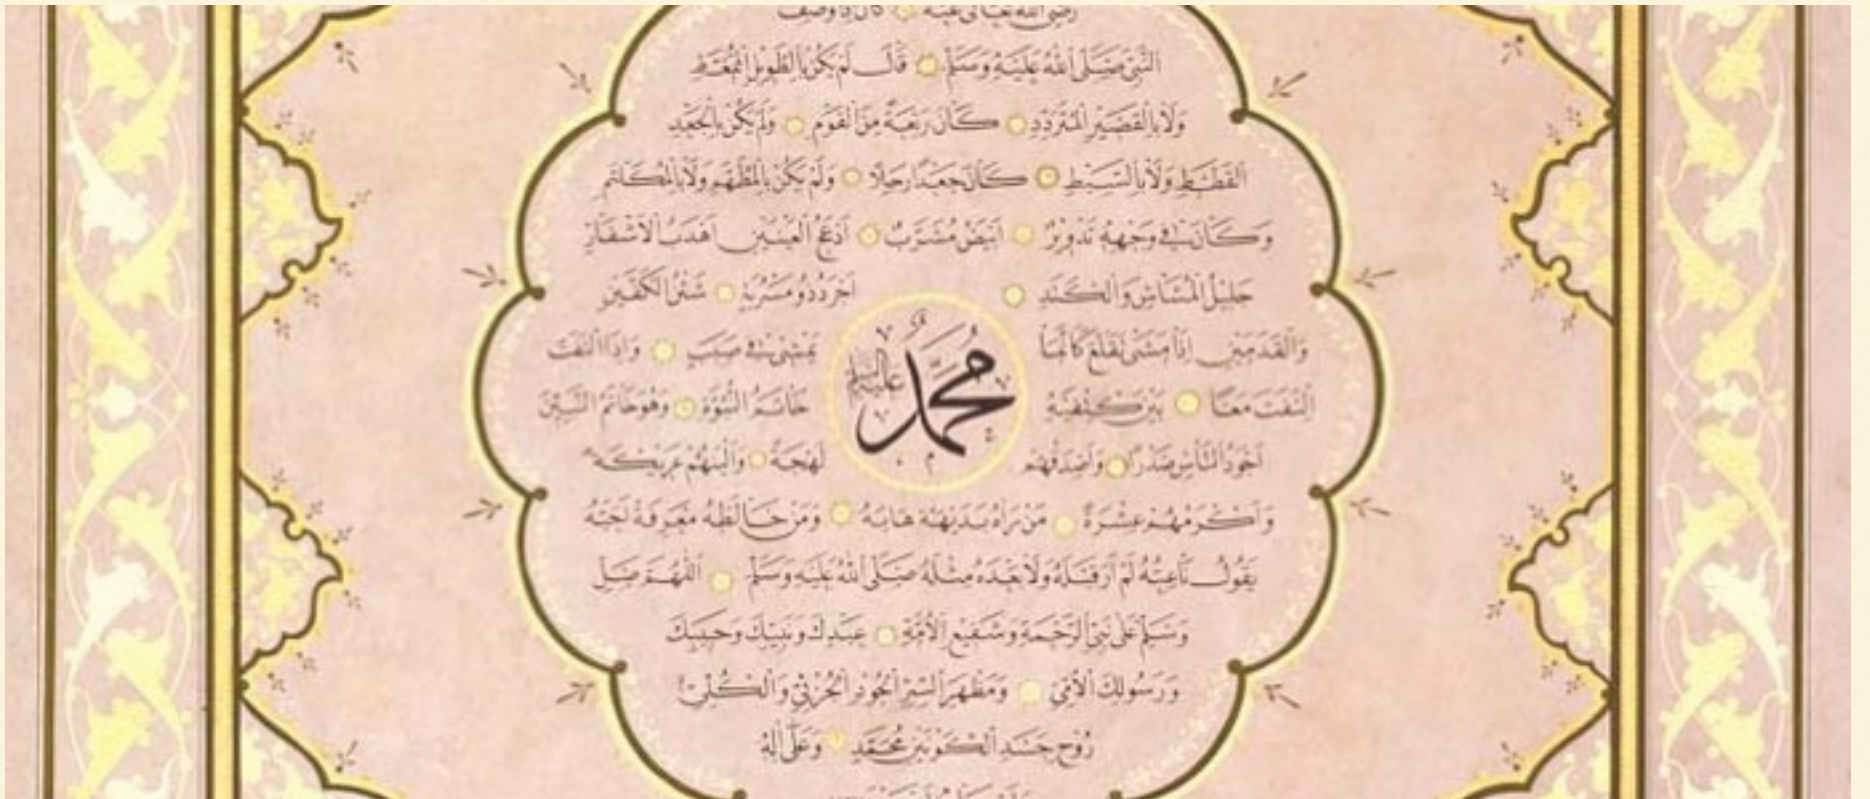 رضي الله تعالى عنه كان إذا وصف
النبي صلى الله عليه وسلم قال لم يكن بالطويل الممغط
ولا بالقصير المتردد كان ربعة من القوم ولم يكن بالجعد
القطط ولا بالسبط كان جعدا رجلا ولم يكن بالمطهم ولا بالمكلثم
وكان في وجهه تدوير أبيض مشرب أدعج العينين أهدب الأشفار
جليل المشاش والكتد أجرد ذو مسربة شثن الكفين
والقدمين إذا مشى تقلع كأنما يمشي في صبب وإذا التفت
التفت معا بين كتفيه خاتم النبوة وهو خاتم النبيين
محمد عليه السلام
أجود الناس صدرا وأصدقهم لهجة وألينهم عريكة
وأكرمهم عشرة من رآه بديهة هابه ومن خالطه معرفة أحبه
يقول ناعته لم أر قبله ولا بعده مثله صلى الله عليه وسلم اللهم صل
وسلم على نبي الرحمة وشفيع الأمة عبدك ونبيك وحبيبك
ورسولك الأمي ومظهر السر الجود الجزئي والكلي
روح جسد الكونين محمد وعلى آله